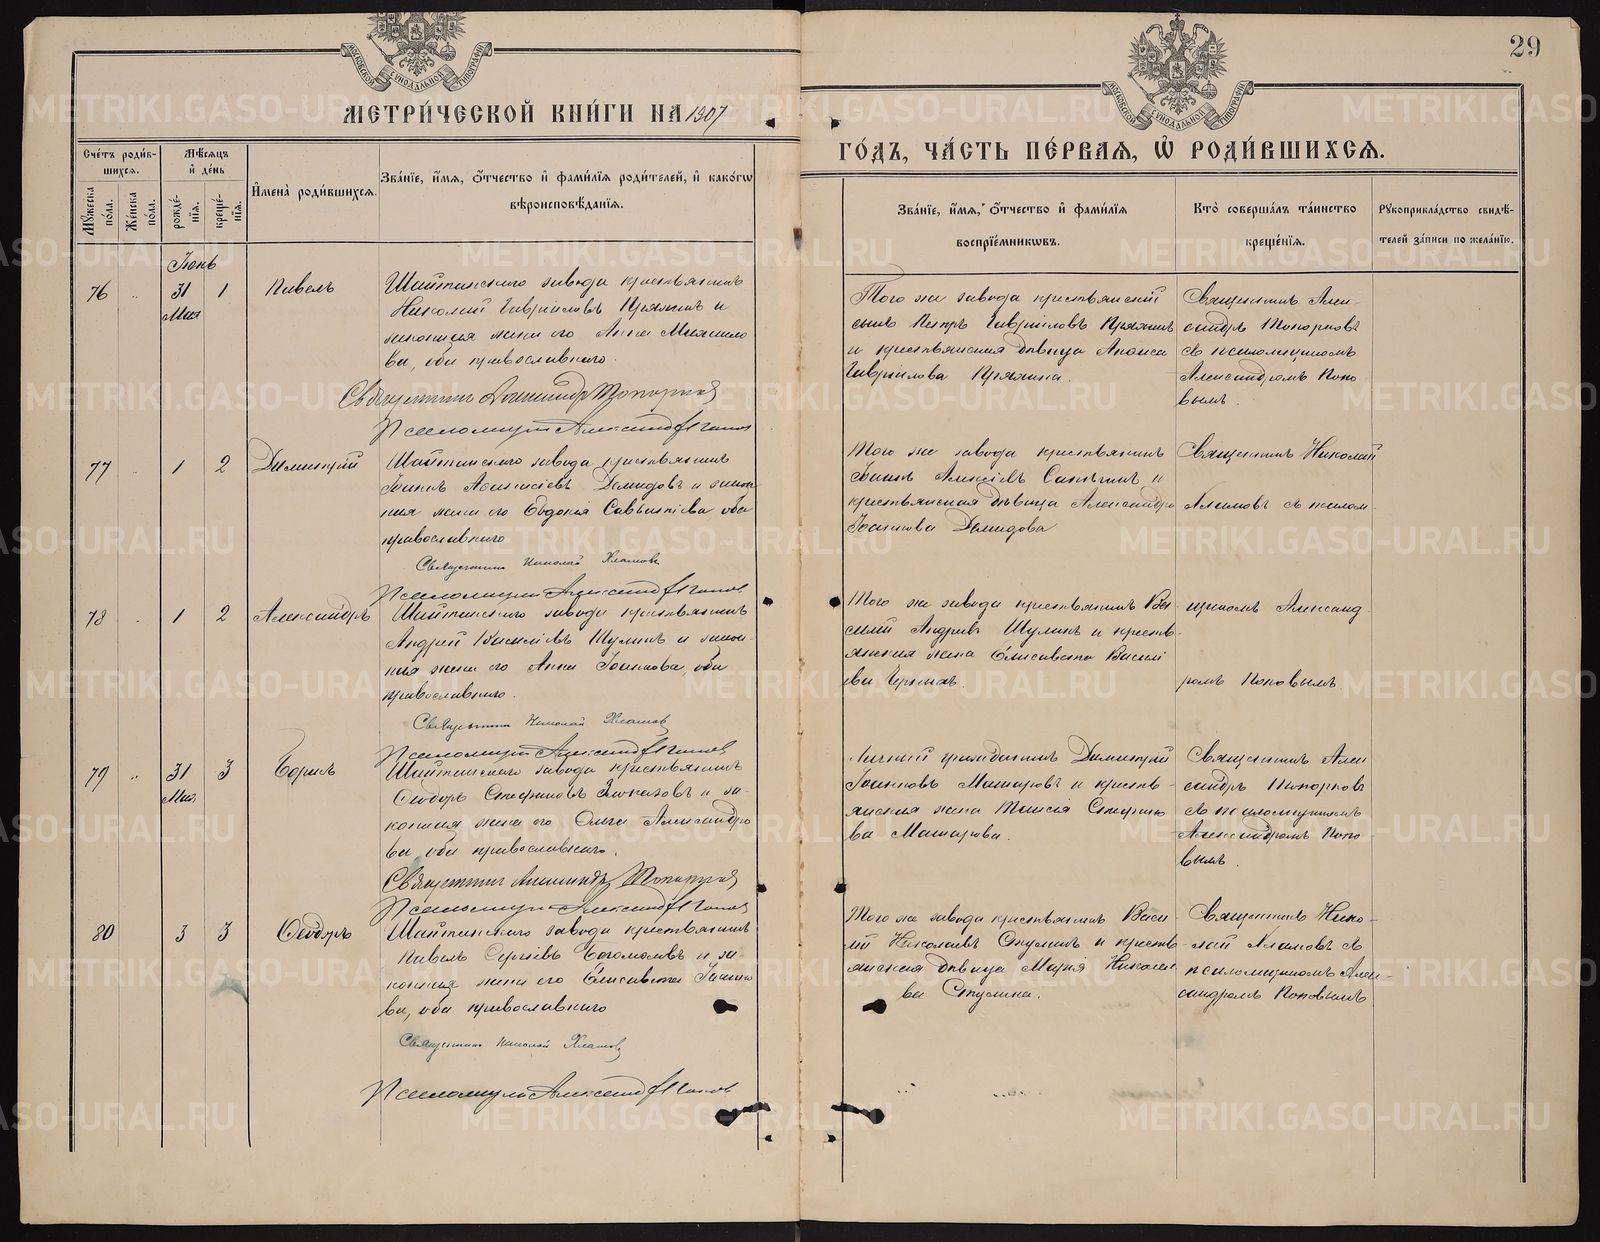 29
МОСКОВСКОЙ СѴНОДАЛЬНОЙ ТИПОГРАФІИ
МЕТРИ́ЧЕСКОЙ КНИ́ГИ НА 1907
ГО́ДЪ, ЧА́СТЬ ПЕ́РВАЯ, Ѡ РОДИ́ВШИХСЯ.
Сче́тъ роди́вшихся.
Мѣ́сяцъ и҆ де́нь
Мꙋ́жеска по́ла.
Же́нска по́ла.
рожде́нїѧ.
креще́нїѧ.
И҆мена̀ роди́вшихсѧ.
Зва́нїе, и҆́мѧ, ѻ҆́тчество и҆ фами́лїѧ роди́телей, и҆ како́гѡ
вѣроисповѣ́данїѧ.
Зва́нїе, и҆́мѧ, ѻ҆́тчество и҆ фами́лїѧ
воспрїе́мникѡвъ.
Кто̀ соверша́лъ та́инство
креще́нїѧ.
Рꙋкоприкла́дство свидѣ́-
телей за́писи по жела́нїю.
Іюнь
76 " 31 Мая 1 Павелъ
Шайтанскаго завода крестьянинъ
Николай Гавриловъ Пряхинъ и
законная жена его Анна Михайло
ва, оба православнаго.
Священникъ Александръ Топорковъ
Псаломщикъ Александръ Поповъ
Того же завода крестьянскій
сынъ Петръ Гавриловъ Пряхинъ
и крестьянская дѣвица Анфиса
Гаврилова Пряхина.
Священникъ Алек-
сандръ Топорковъ
съ псаломщикомъ
Александромъ Попо
вымъ.
77 1 2 Димитрій
Шайтанскаго завода крестьянинъ
Іоаннъ Демидовъ и закон
ная жена его Евдокія Савватіева оба
православнаго
Священникъ Николай
Псаломщикъ Александръ Поповъ
Того же завода крестьянинъ
Іоаннъ Алексіевъ и
крестьянская дѣвица Александра
Іоаннова Демидова
Священникъ Николай
съ псалом-
78 1 2 Александръ
Шайтанскаго завода крестьянинъ
Андрей Василіевъ Шулинъ и закон-
ная жена его Анна Іоаннова, оба
православнаго.
Священникъ Николай
Псаломщикъ Александръ Поповъ
Того же завода крестьянинъ Ва
силій Андреевъ Шулинъ и кресть-
янская жена Елисавета Василі
ева
щикомъ Александ
ромъ Поповымъ.
79 " 31 Мая 3 Борисъ
Шайтанскаго завода крестьянинъ
Ѳеодоръ Стефановъ и за-
конная жена его Ольга Александро
ва, оба православнаго.
Священникъ Александръ Топорковъ
Псаломщикъ Александръ Поповъ
Личный гражданинъ Димитрій
Іоанновъ Макаровъ и кресть-
янская жена Таисія Стефано
ва Макарова.
Священникъ Алек
сандръ Топорковъ
съ псаломщикомъ
Александромъ Попо
вымъ.
80 3 3 Ѳеодоръ
Шайтанскаго завода крестьянинъ
Павелъ Сергіевъ Богомоловъ и за-
конная жена его Елисавета Іоанно
ва, оба православнаго
Священникъ Николай
Псаломщикъ Александръ Поповъ
Того же завода крестьянинъ Васи-
лій Николаевъ Стулинъ и кресть-
янская дѣвица Марія Николае
ва Стулина.
Священникъ Нико-
лай съ
псаломщикомъ Алек-
сандромъ Поповымъ
METRIKI.GASO-URAL.RU